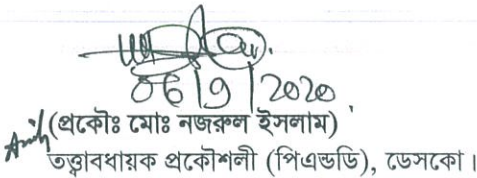 ০৬|৭|2020
(প্রকৌঃ মোঃ নজরুল ইসলাম)
তত্ত্বাবধায়ক প্রকৌশলী (পিএন্ডডি), ডেসকো।